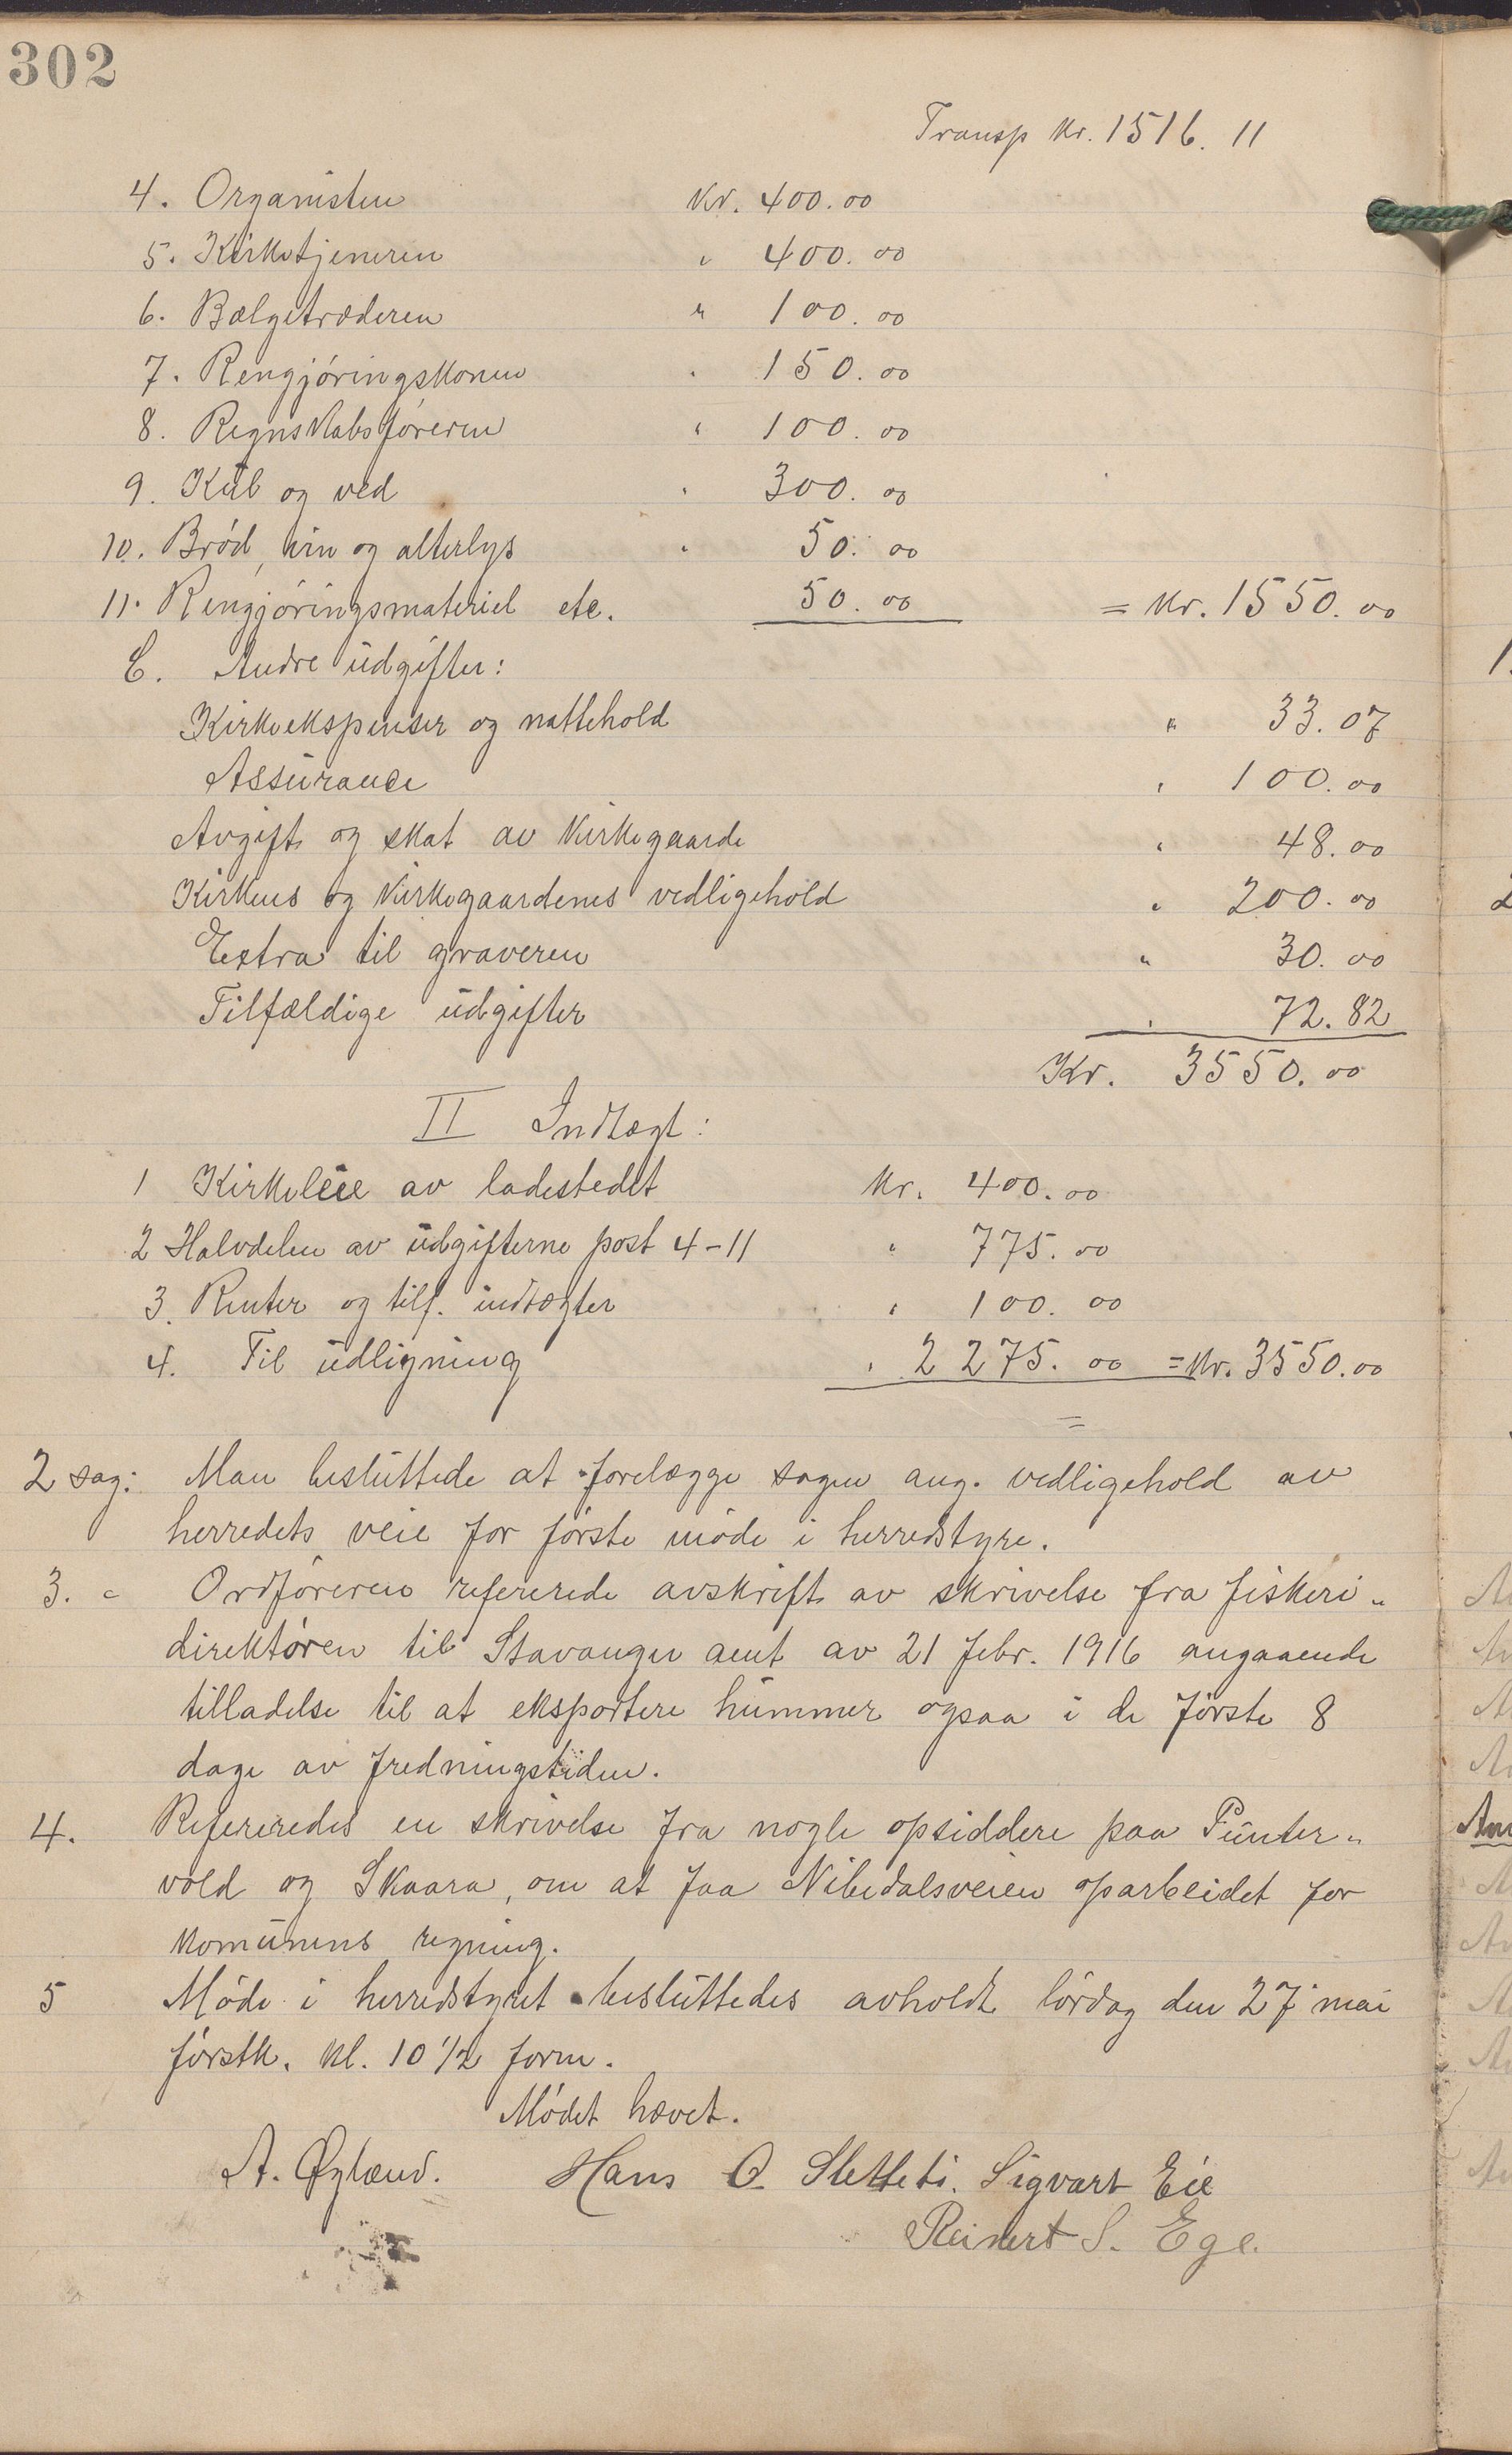 302
Transp Kr. 1516.11
4. Organisten Kr. 400.00
5. Kirketjeneren " 400.00
6. Bælgetræderen " 100.00
7. Rengjøringskonen " 150.00
8. Regnskabsføreren " 100.00
9. Kul og ved " 300.00
10. Brød, vin og alterlys " 50.00
11. Rengjøringsmateriel etc. 50.00 = Kr. 1550.00
C. Andre udgifter:
Kirkeekspenser og nattehold " 33.07
Assurance " 100.00
Avgift og skat av kirkegaarde " 48.00
Kirkens og kirkegaardenes vedligehold " 200.00
Extra til graveren " 30.00
Tilfældige udgifter " 72.82
Kr. 3550.00
II Indtægt:
1 Kirkeleie av ladestedet Kr. 400.00
2 Halvdelen av udgifterne post 4-11 " 775.00
3. Renter og tilf. indtægter " 100.00
4. Til udligning " 2275.00 = Kr. 3550.00
2 sag: Man besluttede at forelægge sagen ang. vedligehold av
herredets veie for første møde i herredstyre.
3. " Ordføreren refererede avskrift av skrivelse fra fiskeri-
direktøren til Stavanger amt av 21 febr. 1916 angaaende
tilladelse til at eksportere hummer ogsaa i de første 8
dage av fredningstiden.
4. Refereredes en skrivelse fra nogle opsiddere paa Punter-
vold og Skaara, om at faa Nibedalsveien oparbeidet for
komunens regning.
5 Møde i herredstyret besluttedes avholdt lørdag den 27 mai
førstk. kl. 10 1/2 form.
Mødet hævet.
A. Øglænd. Hans O. Slettebø. Sigvart Eie
Reinert S. Ege.